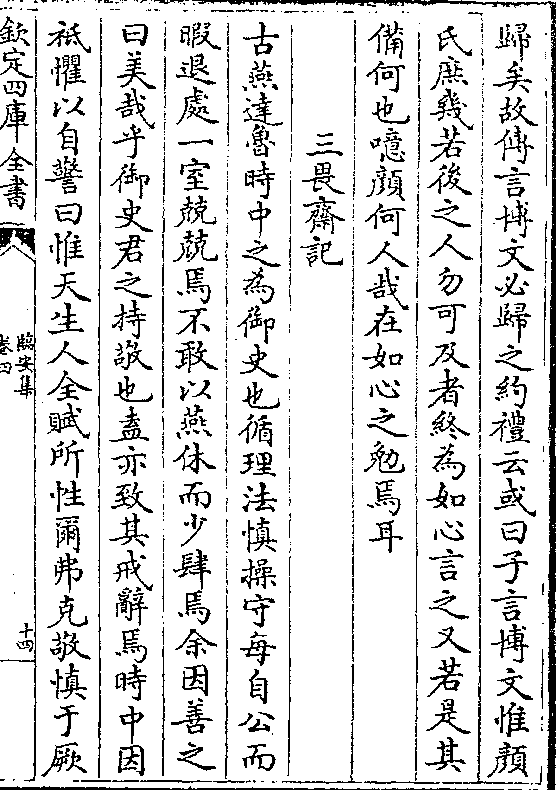 歸矣故傳言博文必歸之約禮云或曰子言博文惟顏
氏庶幾若後之人勿可及者終為如心言之又若是其
備何也噫顏何人哉在如心之勉焉耳
三畏齋記
古燕達魯時中之為御史也循理法慎操守每自公而
暇退處一室兢兢焉不敢以燕休而少肆焉余因善之
曰美哉乎御史君之持敬也盍亦致其戒辭焉時中因
祗懼以自警曰惟天生人全賦所性爾弗克敬慎于厥
欽定四庫全書
臨安集
卷四
十四